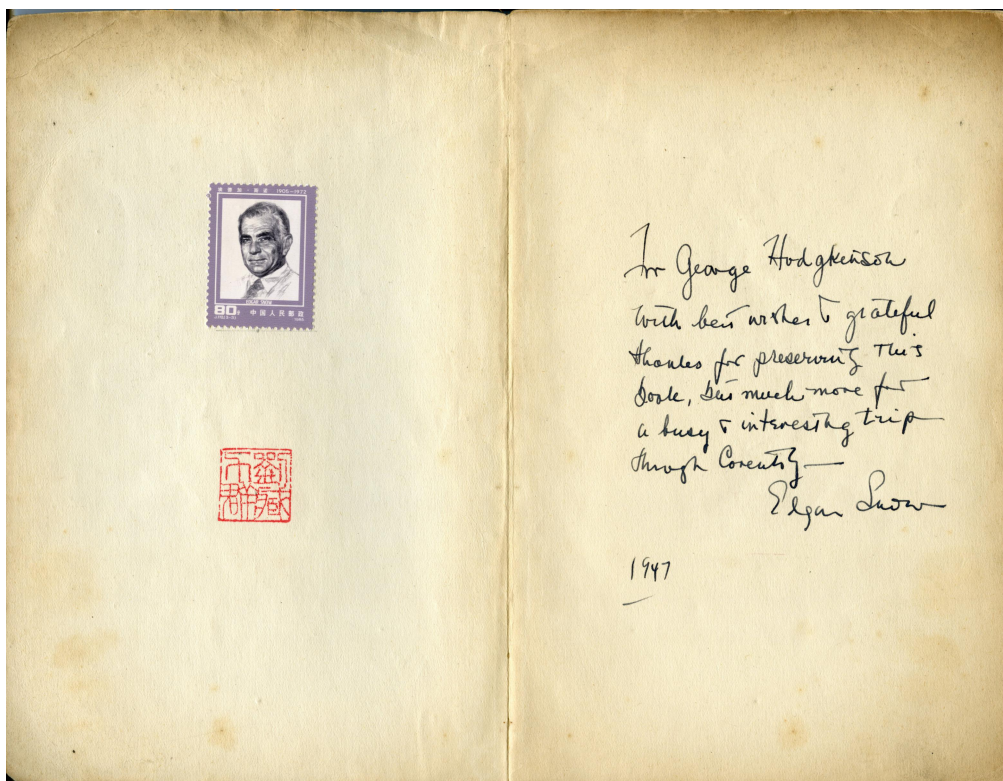 埃德加·斯诺 1905–1972
EDGAR SNOW
80分 中国人民邮政
1985
劉藏
群
For George Hodgkinson
With best wishes & grateful
thanks for preserving this
book, but much more for
a busy & interesting trip
through Coventry—
Edgar Snow
1947